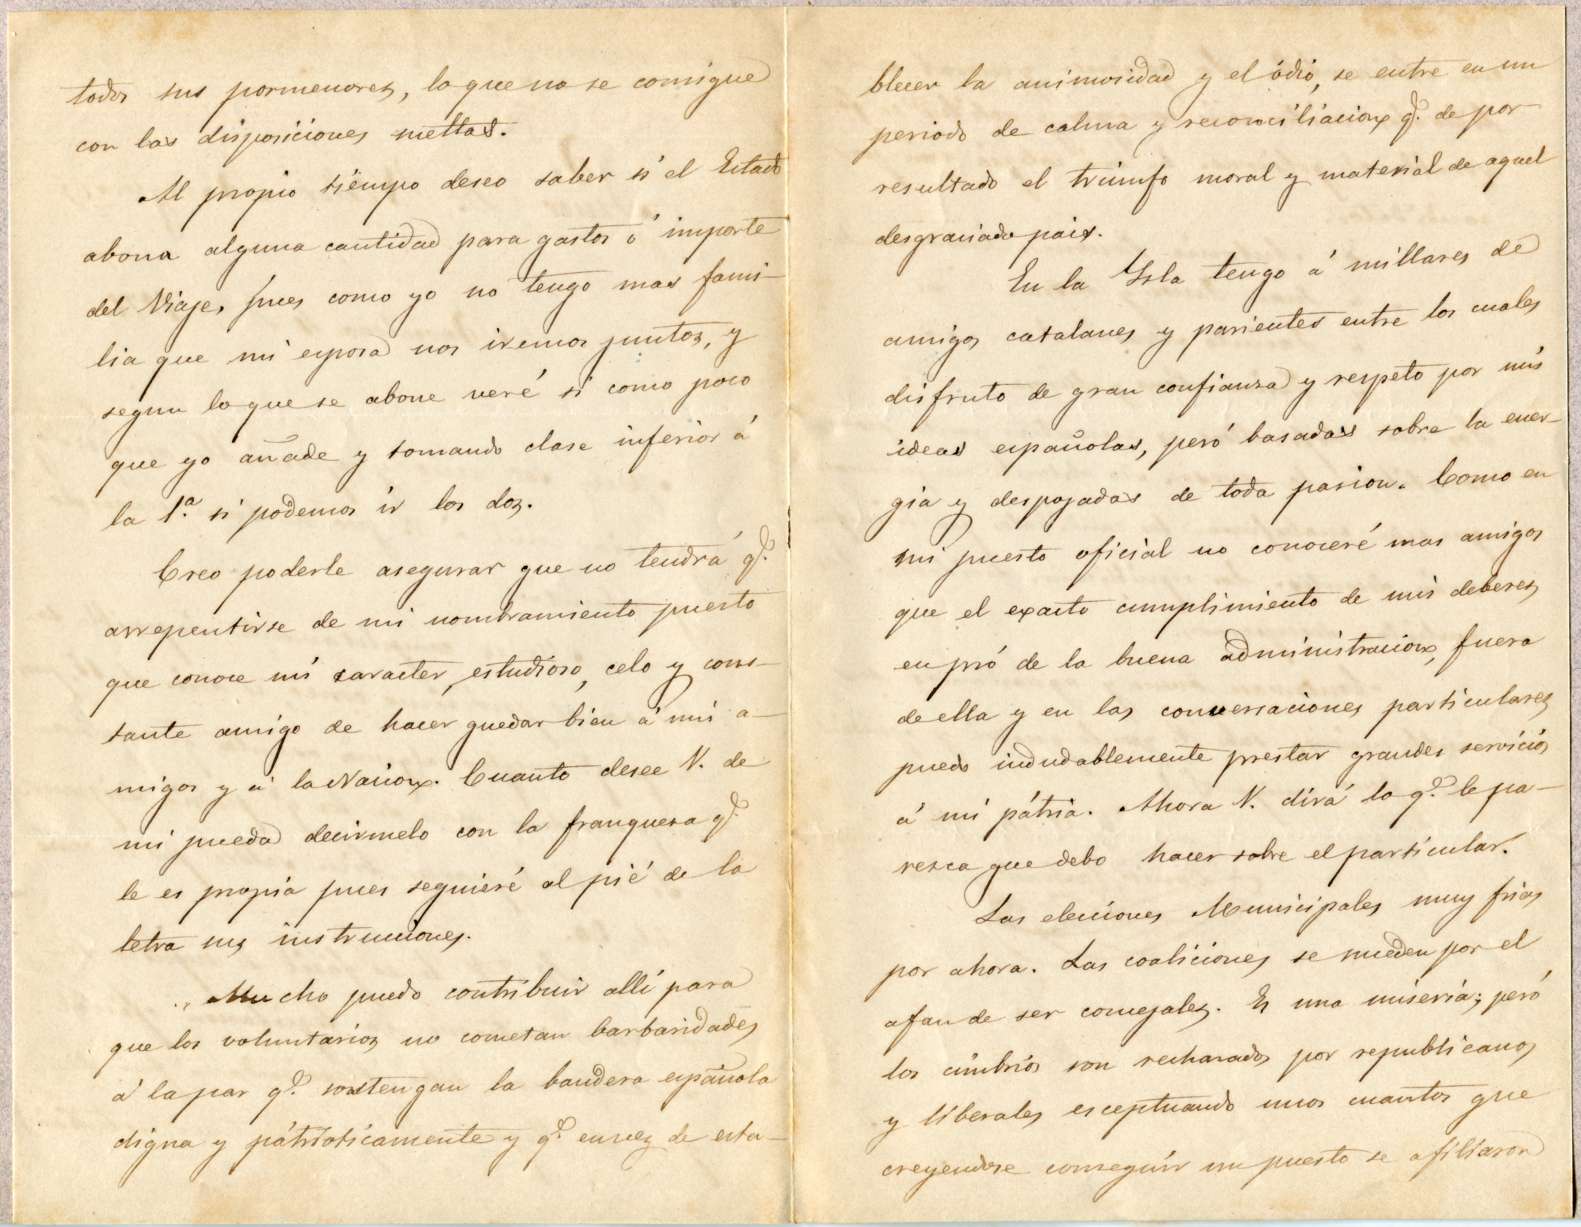 todos sus pormenores, lo que no se consigue
con las disposiciones sueltas.
Al propio tiempo deseo saber si el Estado
abona alguna cantidad para gastos ó importe
del Viaje, pues como yo no tengo mas fami-
lia que mi esposa nos iremos juntos, y
segun lo que se abone veré si como poco
que yo añade y tomando clase inferior á
la 1.ª si podemos ir los dos.
Creo poderle asegurar que no tendrá q.e
arrepentirse de mi nombramiento puesto
que conoce mi caracter, estudioso, celo y cons-
tante amigo de hacer quedar bien á mis a-
migos y á la Nacion. Cuanto desee V. de
mi pueda decirmelo con la franqueza q.e
le es propia pues seguieré al pié de la
letra sus instrucciones.
Mucho puedo contribuir allí para
que los voluntarios no cometan barbaridades
á la par q.e sostengan la bandera española
digna y pátrioticamente y q.e en vez de esta-
blecer la animosidad y el ódio, se entre en un
periodo de calma y reconciliacion q.e de por
resultado el triunfo moral y material de aquel
desgraciado pais.
En la Ysla tengo á millares de
amigos catalanes y parientes entre los cuales
disfruto de gran confianza y respeto por mis
ideas españolas, peró basadas sobre la ener-
gia y despojadas de toda pasion. Como en
mi puesto oficial no conoceré mas amigos
que el exacto cumplimiento de mis deberes
en pró de la buena administracion, fuera
de ella y en las conversaciones particulares
puedo indudablemente prestar grandes servicios
á mi pátria. Ahora V. dirá lo q.e le pa-
resca que debo hacer sobre el particular.
Las elecciones Municipales muy frias
por ahora. Las coaliciones se sueden por el
afan de ser concejales. Es una miseria; peró
los cimbrios son rechazados por republicanos
y liberales esceptuando unos cuantos que
creyendose conseguir un puesto se afiliaron